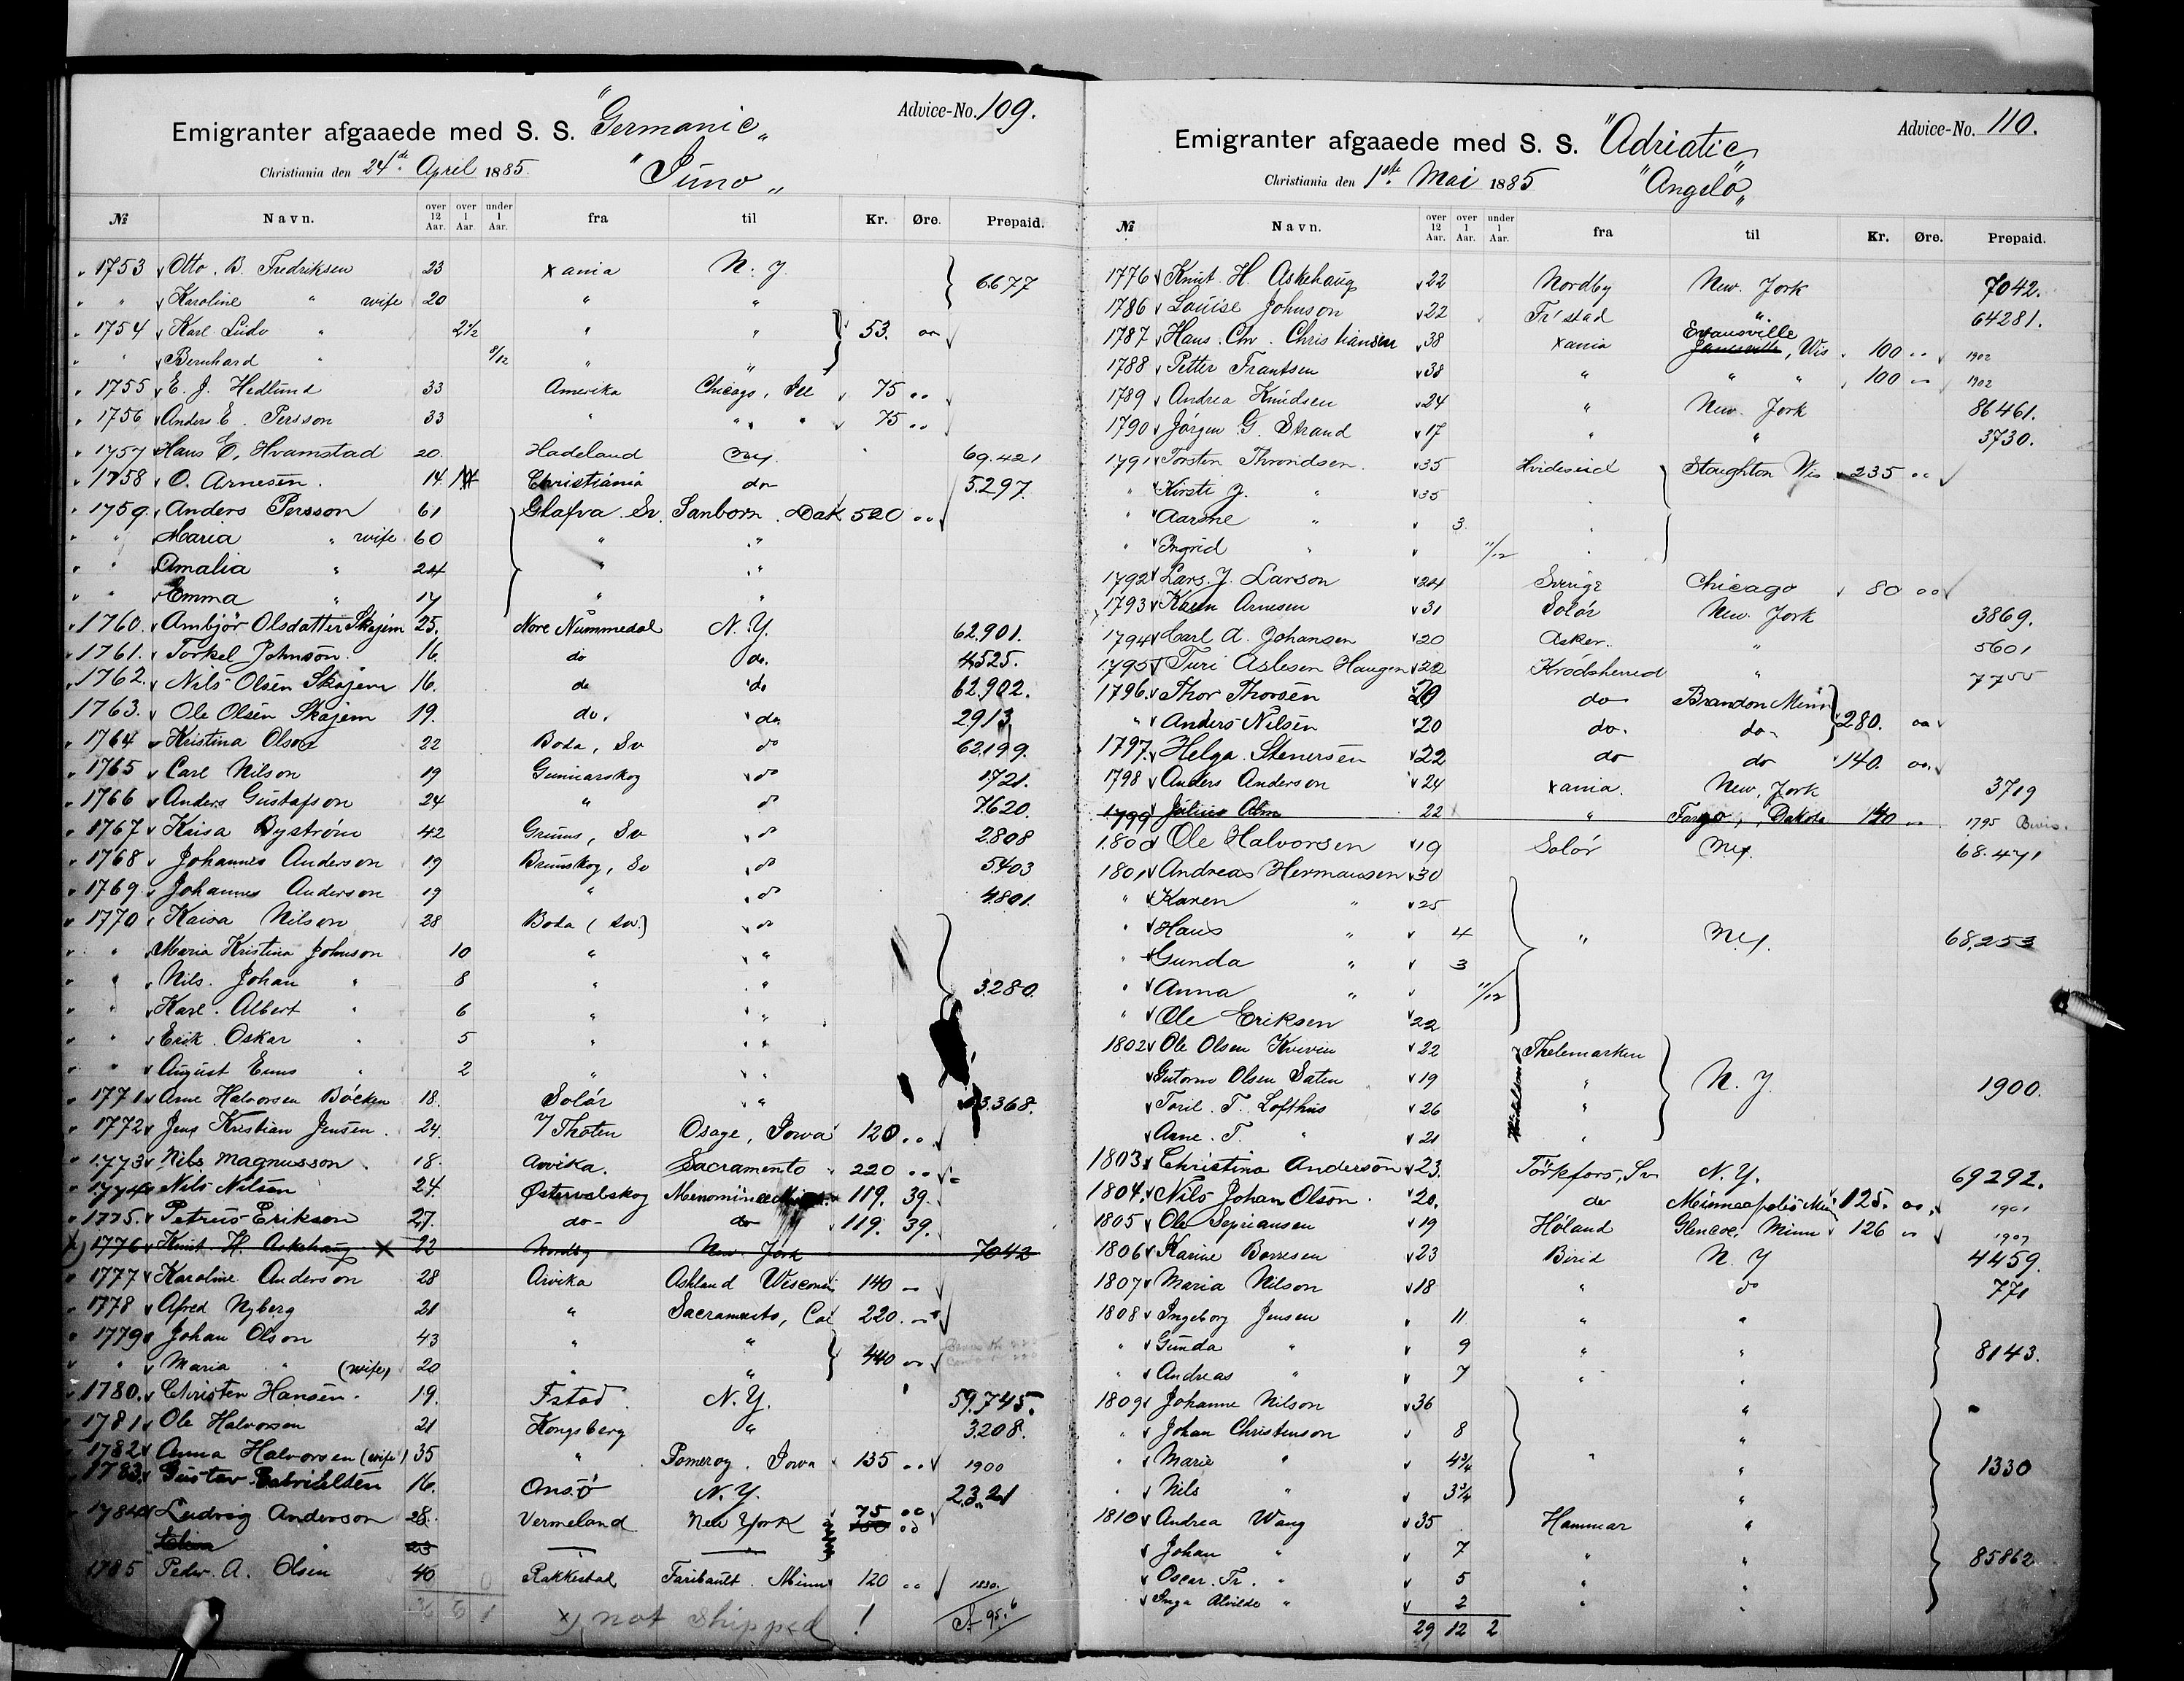 Advice-No. 109.
Emigranter afgaaede med S. S. "Germanic"
Christiania den 24de April 1885. "Juno"
№ Navn. over 12 Aar. over 1 Aar. under 1 Aar. fra til Kr. Øre. Prepaid.
" 1753 Otto. B. Fredriksen 23 Xania N. Y. 6677
" " Karoline " wife 20 " "
" 1754 Karl Ludv " 2½ " " 53. 00
" " Bernhard " 8/12 " "
" 1755 E. J. Hedlund 33 Amerika Chicago, Ill 75 ..
" 1756 Anders E. Persson 33 " " " 75 ..
" 1757 Hans E. Hvamstad 20. Hadeland N.Y. 69.421
" 1758 O. Arnesen. 14 Christiania do 5.297.
" 1759. Anders Persson 61 Glafva Sv. Sanborn. Dak 520 ..
" " Maria " wife 60 " "
" " Amalia " 24 " "
" " Emma " 17 " "
" 1760. Ambjör Olsdatter Skajem 25. Nore Nummedal N.Y. 62.901.
" 1761. Torkel Johnson. 16. do do. 4525.
" 1762. Nils Olsen Skajem 16. do do 62.902.
1763. Ole Olsen Skajem 19. do. do. 2913
" 1764 Kristina Olson 22 Boda, Sv do 62199.
" 1765 Carl Nilson 19 Gunnarskog do 1721.
" 1766 Anders Gustafson 24 " do 7620.
" 1767 Kaisa Byström 42 Grums, Sv do 2808
" 1768 Johannes Anderson 19 Brunskog, Sv do 5403
" 1769. Johannes Anderson 19 " do 4801.
" 1770 Kaisa Nilson 28 Boda (Sv.) do
" " Maria Kristina Johnson 10 " "
" " Nils. Johan " 8 " " 3280.
" " Karl. Albert " 6 " "
" " Erik. Oskar " 5 " "
" " August " 2 " "
" 1771 Arne Halvorsen 18. Solör " 3.368.
" 1772 Jens Kristian Jensen. 24. V/Thoten Osage, Iowa 120 ..
" 1773 Nils Magnusson. 18. Arvika. Sacramento 220 ..
" 1774 Nils Nilsen 24. Østervalskog Menominee 119. 39.
" 1775. Petrus Erikson 27. do- do 119. 39.
X) 1776 Knut H. Askehaug X 22 Nordby New York 7042
" 1777 Karoline Anderson 28 Arvika Ashland Wisconsin 140 ..
" 1778 Alfred Nyberg 21 " Sacramento, Cal 220. ..
" 1779 Johan Olson 43 " "
" " Maria " (wife) 20 " " 440 ..
" 1780. Christen Hansen. 19. Fstad N.Y. 59.745.
" 1781 Ole Halvorsen 21 Kongsberg " 3208.
1782 Anna Halvorsen (wife) 35 " Pomeroy. Iowa 135 .. 1900
1783. Gustav 16. Onsö N.Y. 2321
1784 Ludvig Anderson 28. Vermeland New York 75 00
23
1785 Peder. A. Olsen 40 Rakkestad Faribault. Minn 120 .. 1830.
36 6 1 x) not shipped !
Advice-No. 110.
Emigranter afgaaede med S. S. "Adriatic"
Christiania den 1ste Mai 1885 "Angelo"
№ Navn. over 12 Aar. over 1 Aar. under 1 Aar. fra til Kr. Øre. Prepaid.
1776 Knut. H. Askehaug 22 Nordby New. York 7042.
1786 Louise Johnson 22 Fr'stad " 64281.
1787 Hans. Chr. Christiansen 38 Xania Evansville Janesville, Wis 100 .. 1902
1788 Petter Frantsen 38 " " " 100 .. 1902
1789 Andrea Knudsen 24 " New. York 86461.
1790 Jörgen G. Strand 17 " " 3730.
1791 Torsten Throndsen. 35 Hvideseid Stoughton Wis 235 ..
" Kirsti J. " 35
" Aasne " 3
" Ingrid " 11/12
1792 Lars. J. Larson 24 Sverige Chicago 80 00
1793 Karen Arnesen 31 Solör New. York 3869.
1794 Carl A. Johansen 20 Asker. " 5601
1795 Turi Aslesen Haugen 22 Krödsherred " 7755
1796. Thor Thorsen 20 do Brandon Minn
" Anders Nilsen 20 do. do- 280. 00
1797. Helga. Stenersen 22 do do 140. 00.
1798 Anders Anderson 24 Xania. New. York 3719
1799 Julius Olm 22 " Fargo, Dakota 140 .. 1795 Bevis.
1800 Ole Halvorsen 19 Solör N.Y. 68.471
1801 Andreas Hermansen 30
" Karen " 25
" Hans " 4 " N.Y. 68,253
" Gunda " 3
" Anna " 11/12
" Ole Eriksen 22
1802 Ole Olsen Kvevin 22 Thelemarken
Gutorm Olsen Saten 19 " N. Y. 1900.
Toril. T. Lofthus 26 "
Arne. T. " 21 "
1803 Christina Anderson 23. Töckfors, Sv N.Y. 69292.
1804. Nils Johan Olson. 20. do Minneapolis Min 125. 00 1901
1805 Ole 19 Höland Glencoe, Minn 126 .. 1907
1806 Karine Borresen 23 Birid N. Y 4459.
1807 Maria Nilson 18 " do 771
1808 Ingeborg Jensen 11 " "
" Gunda " 9 " " 8143.
" Andreas " 7 " "
1809 Johanne Nilson 36 "
" Johan Christenson 8 "
" Marie " 4¾ " " 1330
" Nils " 3¾ "
1810 Andrea Wang 35 Hammar "
Johan " 7 " " 85862
Oscar. Fr. " 5 " "
Inga Alvilde " 2 " "
29 12 2